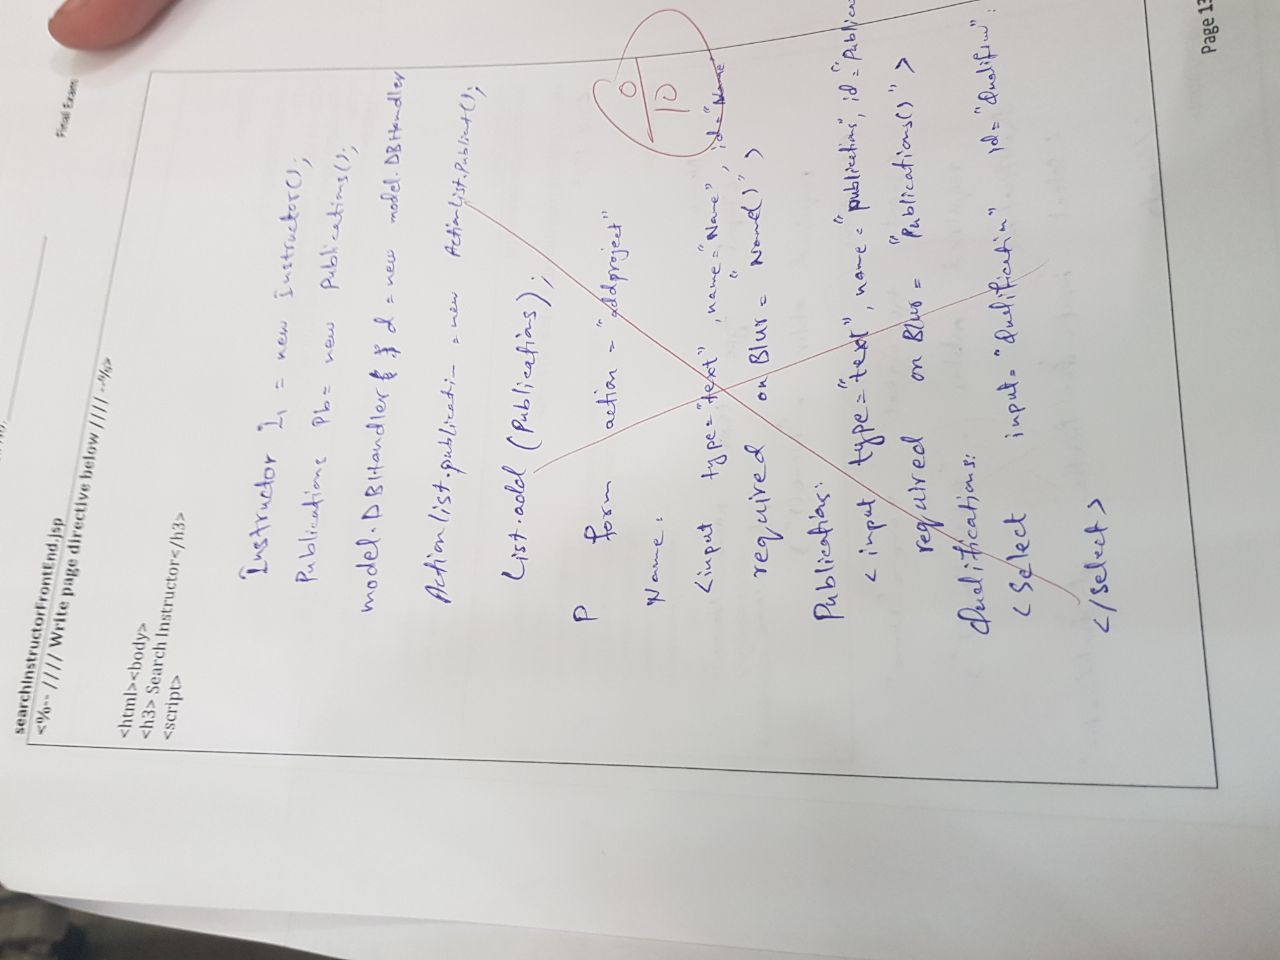 searchInstructorFrontEnd.jsp
Final Exam
<%-- //// Write page directive below //// --%>
<html><body>
<h3> Search Instructor</h3>
<script>
Instructor I1 = new Instructor();
Publications Pb = new Publications();
model.DBHandler d = new model.DBHandler
Actionlist.publicati = new ActionList.Publicat();
List.add (Publications);
P form action = "addproject"
0
10
Name:
<input type="text", name="Name", id="Name"
required onBlur = "Name()">
Publications:
<input type="text", name="publications", id="Publica
required onBlur = "Publications()">
Qualifications:
<Select input="Qualification" id="
</Select>
Page 13